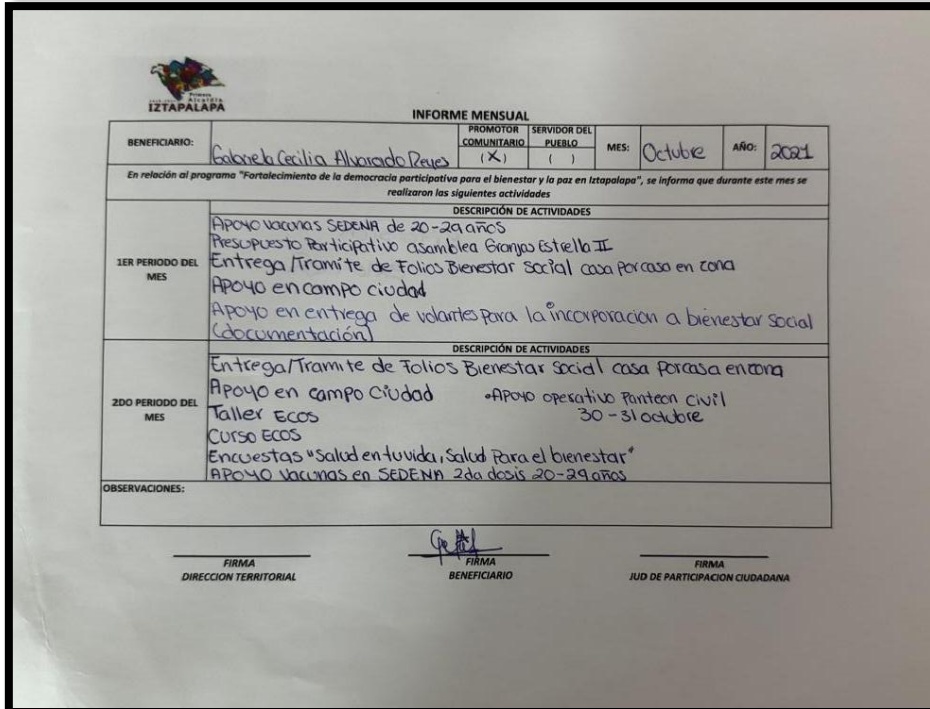 Primera
Alcaldía
IZTAPALAPA
INFORME MENSUAL
BENEFICIARIO: Gabriela Cecilia Alvarado Reyes PROMOTOR COMUNITARIO (X) SERVIDOR DEL PUEBLO ( ) MES: Octubre AÑO: 2021
En relación al programa "Fortalecimiento de la democracia participativa para el bienestar y la paz en Iztapalapa", se informa que durante este mes se
realizaron las siguientes actividades
1ER PERIODO DEL MES
DESCRIPCIÓN DE ACTIVIDADES
Apoyo vacunas SEDENA de 20-29 años
Presupuesto Participativo asamblea Granjas Estrella II
Entrega/Tramite de Folios Bienestar Social casa por casa en zona
Apoyo en campo ciudad
Apoyo en entrega de volantes para la incorporacion a bienestar social
(documentación)
2DO PERIODO DEL MES
DESCRIPCIÓN DE ACTIVIDADES
Entrega/Tramite de Folios Bienestar Social casa por casa en zona
Apoyo en campo ciudad •Apoyo operativo Panteon civil
Taller ECOS 30-31 octubre
Curso ECOS
Encuestas "Salud en tu vida, Salud Para el bienestar"
Apoyo vacunas en SEDENA 2da dosis 20-29 años
OBSERVACIONES:
FIRMA
DIRECCION TERRITORIAL
FIRMA
BENEFICIARIO
FIRMA
JUD DE PARTICIPACION CIUDADANA